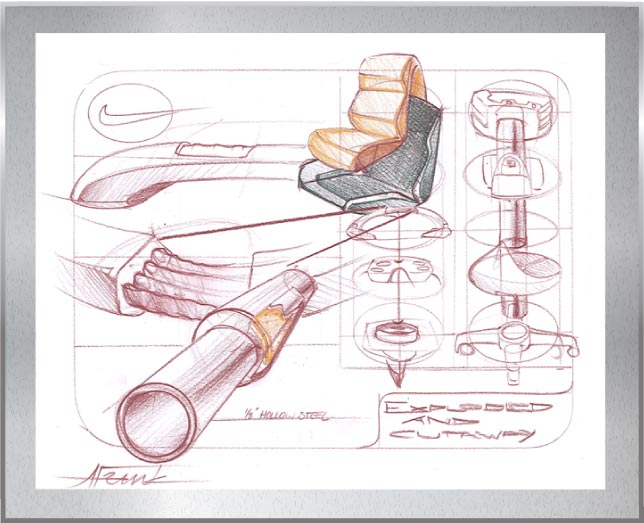 1/8" HOLLOW STEEL
EXPLODED
AND
CUTAWAY